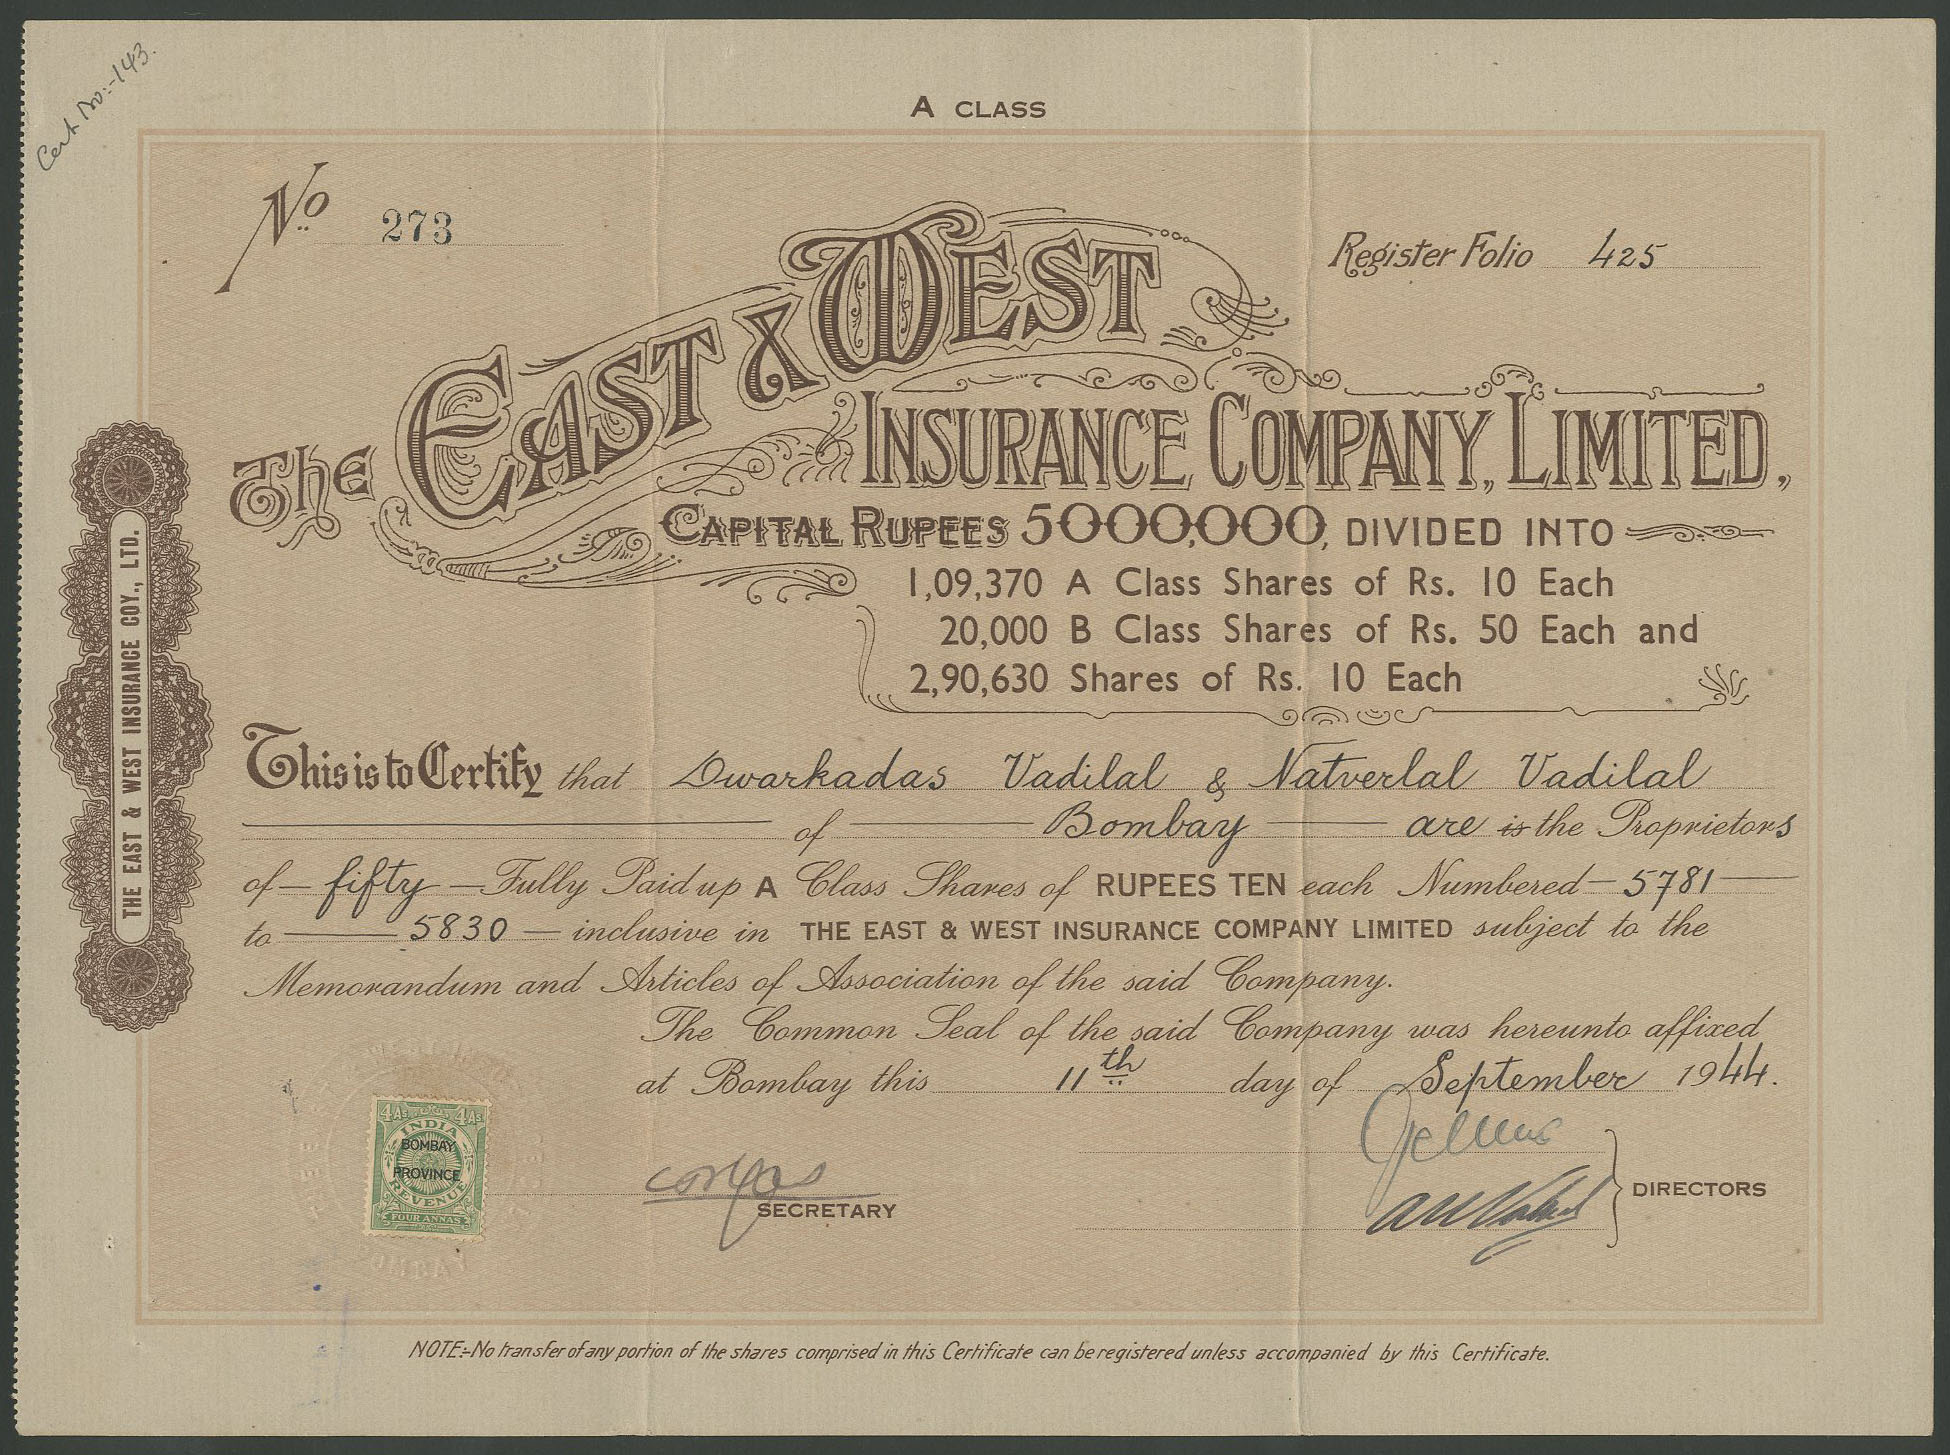 Cert No:-143.
A CLASS
No 273
Register Folio 425
The EAST & WEST
INSURANCE COMPANY, LIMITED,
CAPITAL RUPEES 5000,000, DIVIDED INTO
1,09,370 A Class Shares of Rs. 10 Each
20,000 B Class Shares of Rs. 50 Each and
2,90,630 Shares of Rs. 10 Each
THE EAST & WEST INSURANCE COY., LTD.
This is to Certify that Dwarkadas Vadilal & Natverlal Vadilal
of Bombay are is the Proprietors
of fifty Fully Paid up A Class Shares of RUPEES TEN each Numbered 5781
to 5830 inclusive in THE EAST & WEST INSURANCE COMPANY LIMITED subject to the
Memorandum and Articles of Association of the said Company.
The Common Seal of the said Company was hereunto affixed
at Bombay this 11th day of September 1944.
4As 4As
INDIA
BOMBAY
PROVINCE
REVENUE
FOUR ANNAS
SECRETARY
DIRECTORS
NOTE:-No transfer of any portion of the shares comprised in this Certificate can be registered unless accompanied by this Certificate.